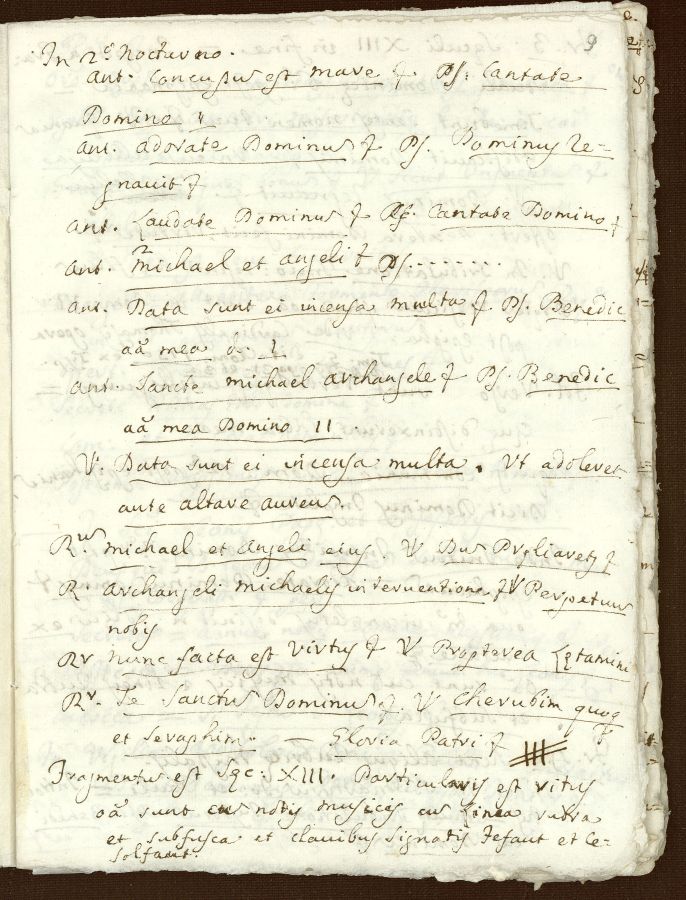 9
In 2º Nocturno.
ant. Concussus est mare & Ps: Cantate
Domino ıı
ant. adorate Dominus & Ps. Dominus Re-
gnavit &
ant. Laudate Dominus & Ps. Cantate Domino &
ant. Michael et angeli & Ps. . . . . . . .
ant. Data sunt ei incensa multa & Ps. Benedic
aã mea D. I
ant. Sancte michael archangele & Ps. Benedic
aã mea Domino II
V. Data sunt ei incensa multa. Ut adoleret
ante altare aureus
Rus michael et angeli eius. V Dus
R archangeli michaelis interventione & V Perpetuus
nobis
Rv. nunc facta est virtus & V Propterea Lętamini
Rv. Te Sanctus Dominus &. V Cherubim quoq
et seraphim. – Gloria Patri &
Fragmentus est Sęc: XIII. Particularis est ritus
oã sunt cus notis musicis cus linea rubra
et subfusca et clavibus signatis Fefaut et Ce-
solfaut.